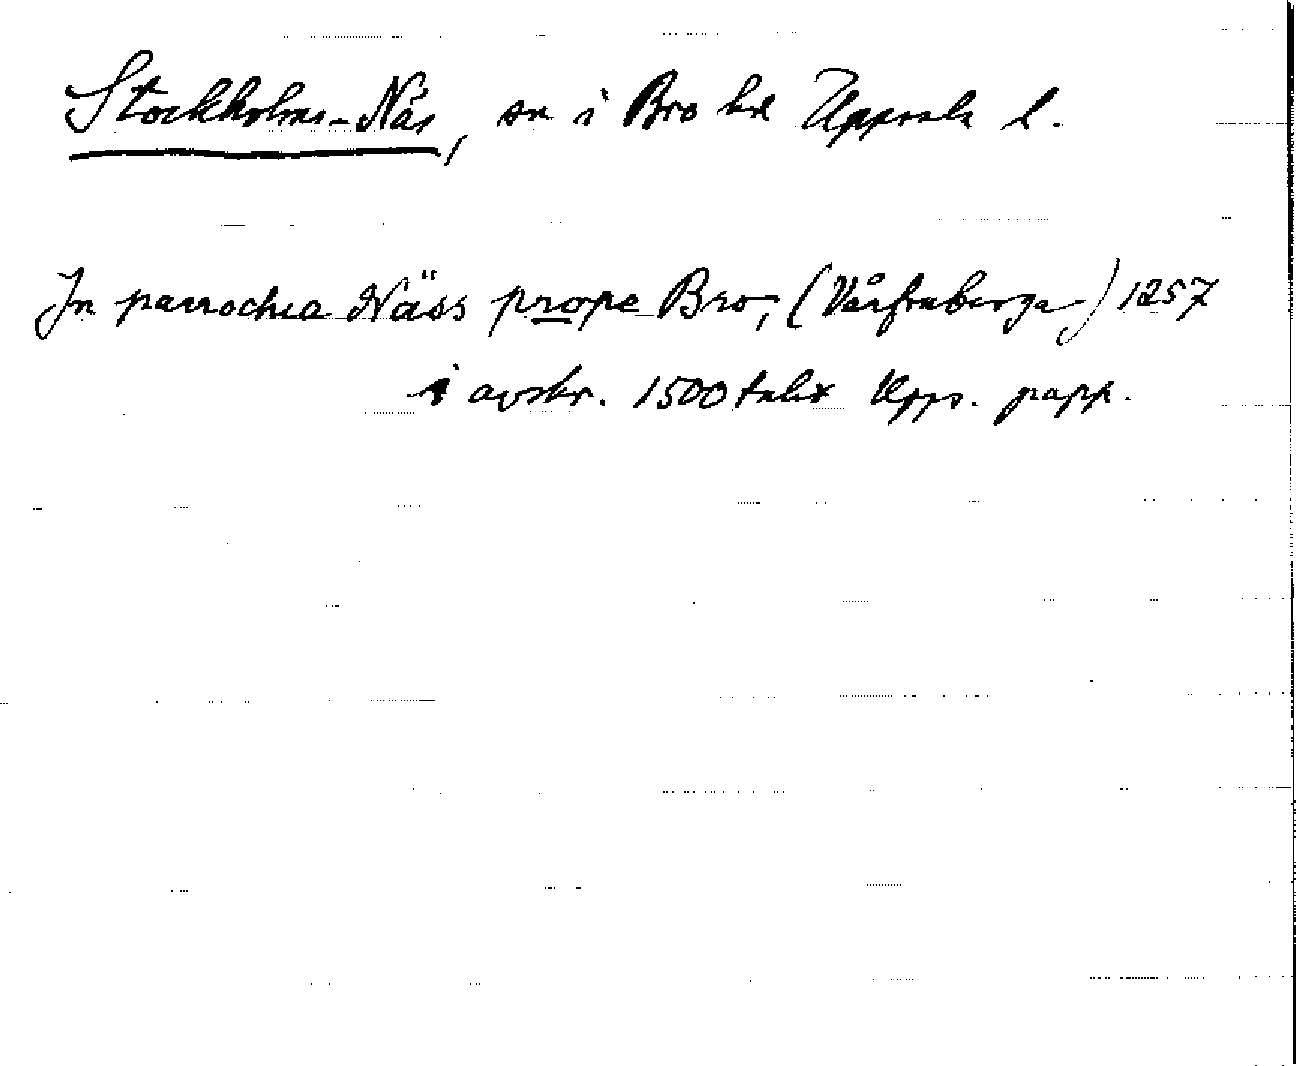 Stockholms-Näs, sn i Bro hd Uppsala l.
In parrochia Näss prope Bro, (Vårfruberga) 1257
i avskr. 1500 talet Upps. papp.